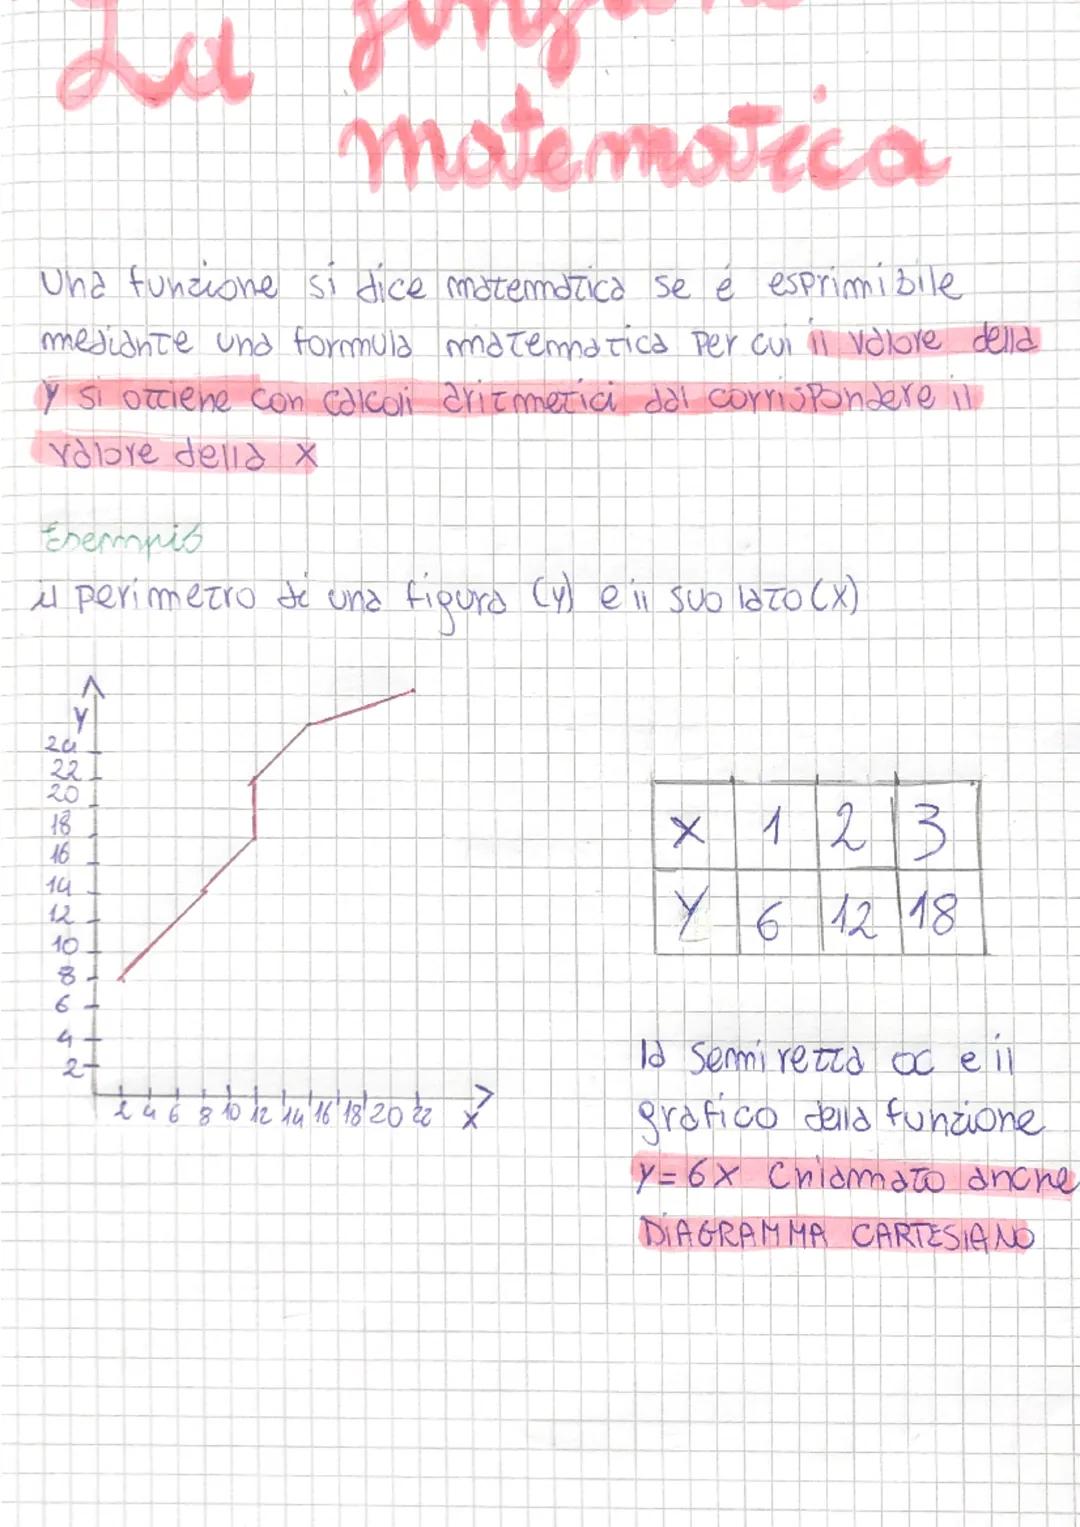 La funzione
matematica
Una funzione si dice matematica se é esprimibile
mediante una formula matematica per cui il valore della
y si ottiene con calcoli aritmetici dal corrispondere il
valore della x
Esempio
il perimetro di una figura (y) e il suo lato (x)
y
24
22
20
18
16
14
12
10
8
6
4
2
2 4 6 8 10 12 14 16 18 20 22 x
X 1 2 3
Y 6 12 18
la semiretta oc e il
grafico della funzione
y=6x Chiamato anche
DIAGRAMMA CARTESIANO